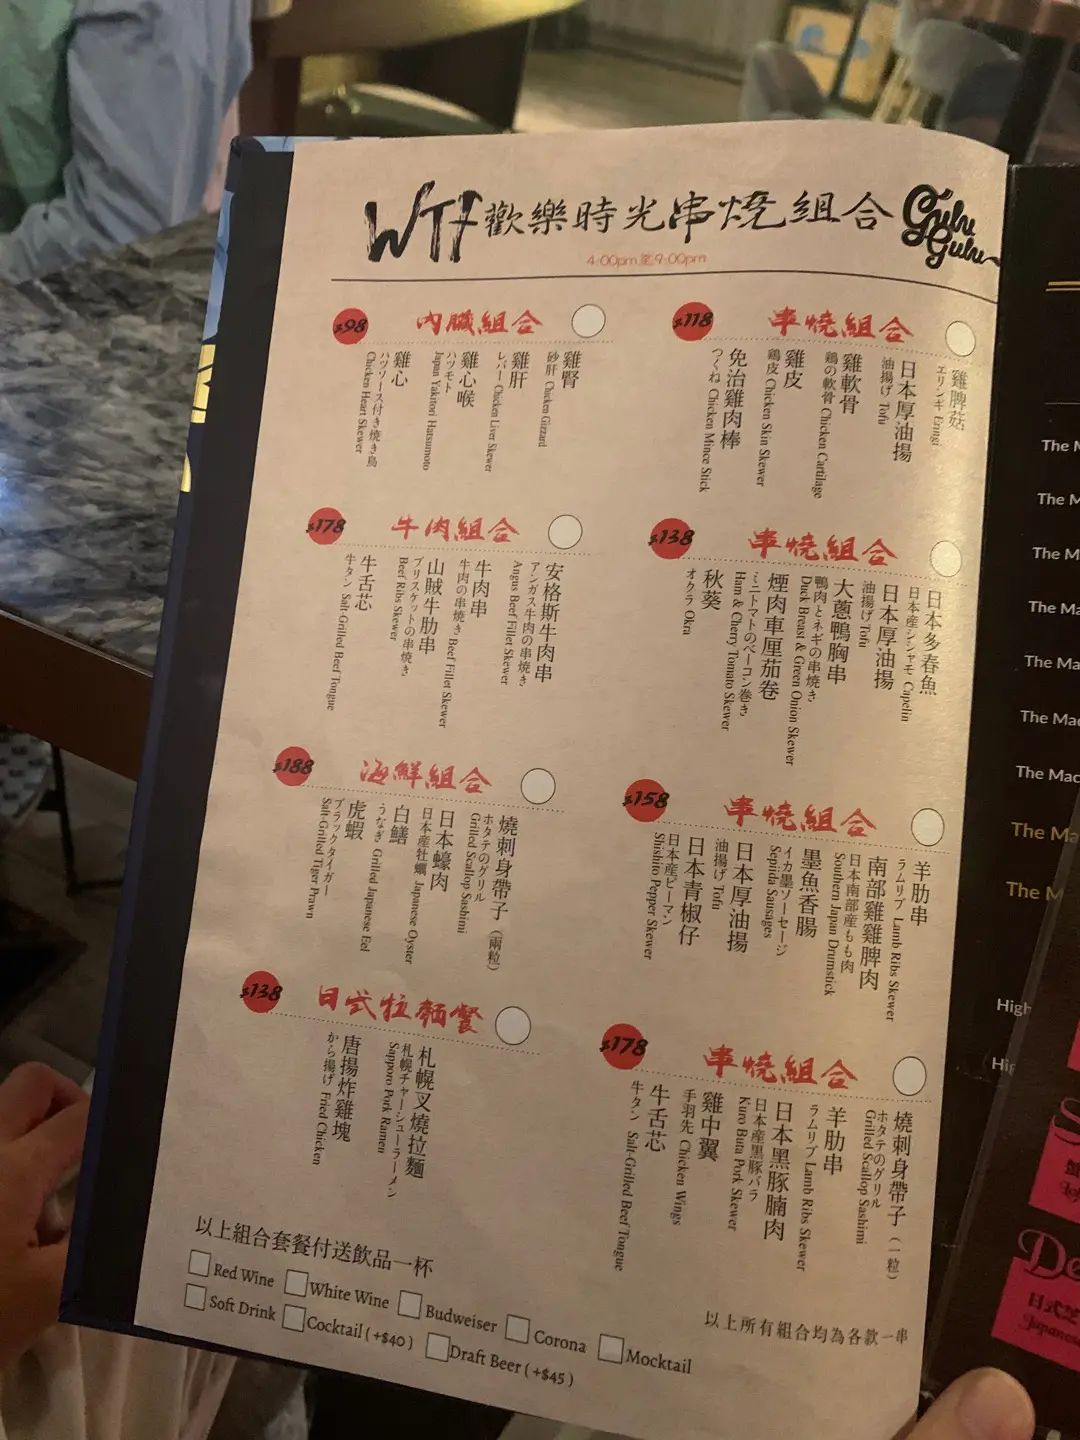 WTF歡樂時光串燒組合
Gulu Gulu
4:00pm 至 9:00pm
$98 內臟組合
雞腎
砂肝 Chicken Gizzard
雞肝
レバー Chicken Liver Skewer
雞心喉
ハツモト
Japan Yakitori Hatsumoto
雞心
ハツソース付き焼き鳥
Chicken Heart Skewer
$118 串燒組合
雞脾菇
エリンギ Eringi
日本厚油揚
油揚げ Tofu
雞軟骨
鶏の軟骨 Chicken Cartilage
雞皮
鶏皮 Chicken Skin Skewer
免治雞肉棒
つくね Chicken Mince Stick
$178 牛肉組合
安格斯牛肉串
アンガス牛肉の串焼き
Angus Beef Fillet Skewer
牛肉串
牛肉の串焼き Beef Fillet Skewer
山賊牛肋串
ブリスケットの串焼き
Beef Ribs Skewer
牛舌芯
牛タン Salt-Grilled Beef Tongue
$138 串燒組合
日本多春魚
日本産シシャモ Capelin
日本厚油揚
油揚げ Tofu
大蔥鴨胸串
鴨肉とネギの串焼き
Duck Breast & Green Onion Skewer
煙肉車厘茄卷
ミニトマトのベーコン巻き
Ham & Cherry Tomato Skewer
秋葵
オクラ Okra
$188 海鮮組合
燒刺身帶子（兩粒）
ホタテのグリル
Grilled Scallop Sashimi
日本蠔肉
日本産牡蠣 Japanese Oyster
白鱔
うなぎ Grilled Japanese Eel
虎蝦
ブラックタイガー
Salt-Grilled Tiger Prawn
$158 串燒組合
羊肋串
ラムリブ Lamb Ribs Skewer
南部雞雞脾肉
日本南部産もも肉
Southern Japan Drumstick
墨魚香腸
イカ墨ソーセージ
Sepiida Sausages
日本厚油揚
油揚げ Tofu
日本青椒仔
日本産ピーマン
Shishito Pepper Skewer
$138 日式拉麵餐
札幌叉燒拉麵
札幌チャーシューラーメン
Sapporo Pork Ramen
唐揚炸雞塊
から揚げ Fried Chicken
$178 串燒組合
燒刺身帶子（一粒）
ホタテのグリル
Grilled Scallop Sashimi
羊肋串
ラムリブ Lamb Ribs Skewer
日本黑豚腩肉
日本産黒豚バラ
Kuro Buta Pork Skewer
雞中翼
手羽先 Chicken Wings
牛舌芯
牛タン Salt-Grilled Beef Tongue
以上組合套餐付送飲品一杯
Red Wine White Wine Budweiser Corona Mocktail
Soft Drink Cocktail (+$40) Draft Beer (+$45)
以上所有組合均為各款一串
The
The
The
The
The Ma
The Ma
The Mac
The Mac
The Ma
The
High